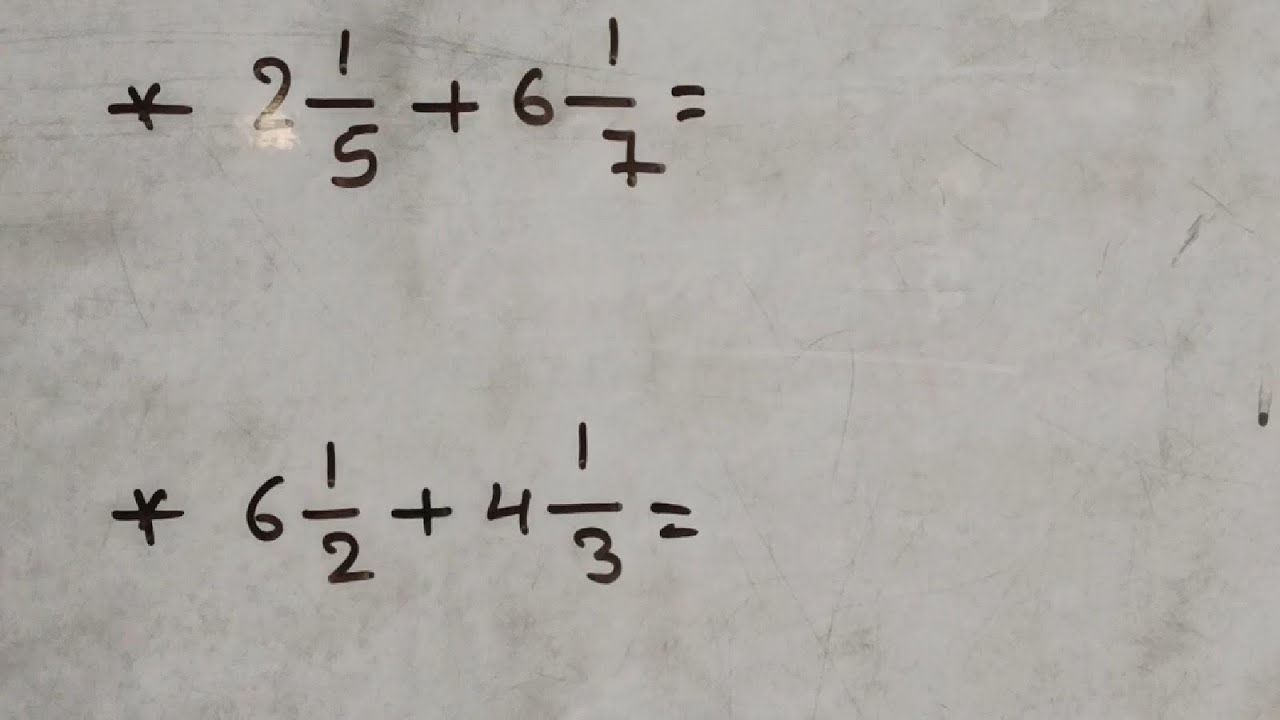 * 2 1/5 + 6 1/7 =
* 6 1/2 + 4 1/3 =